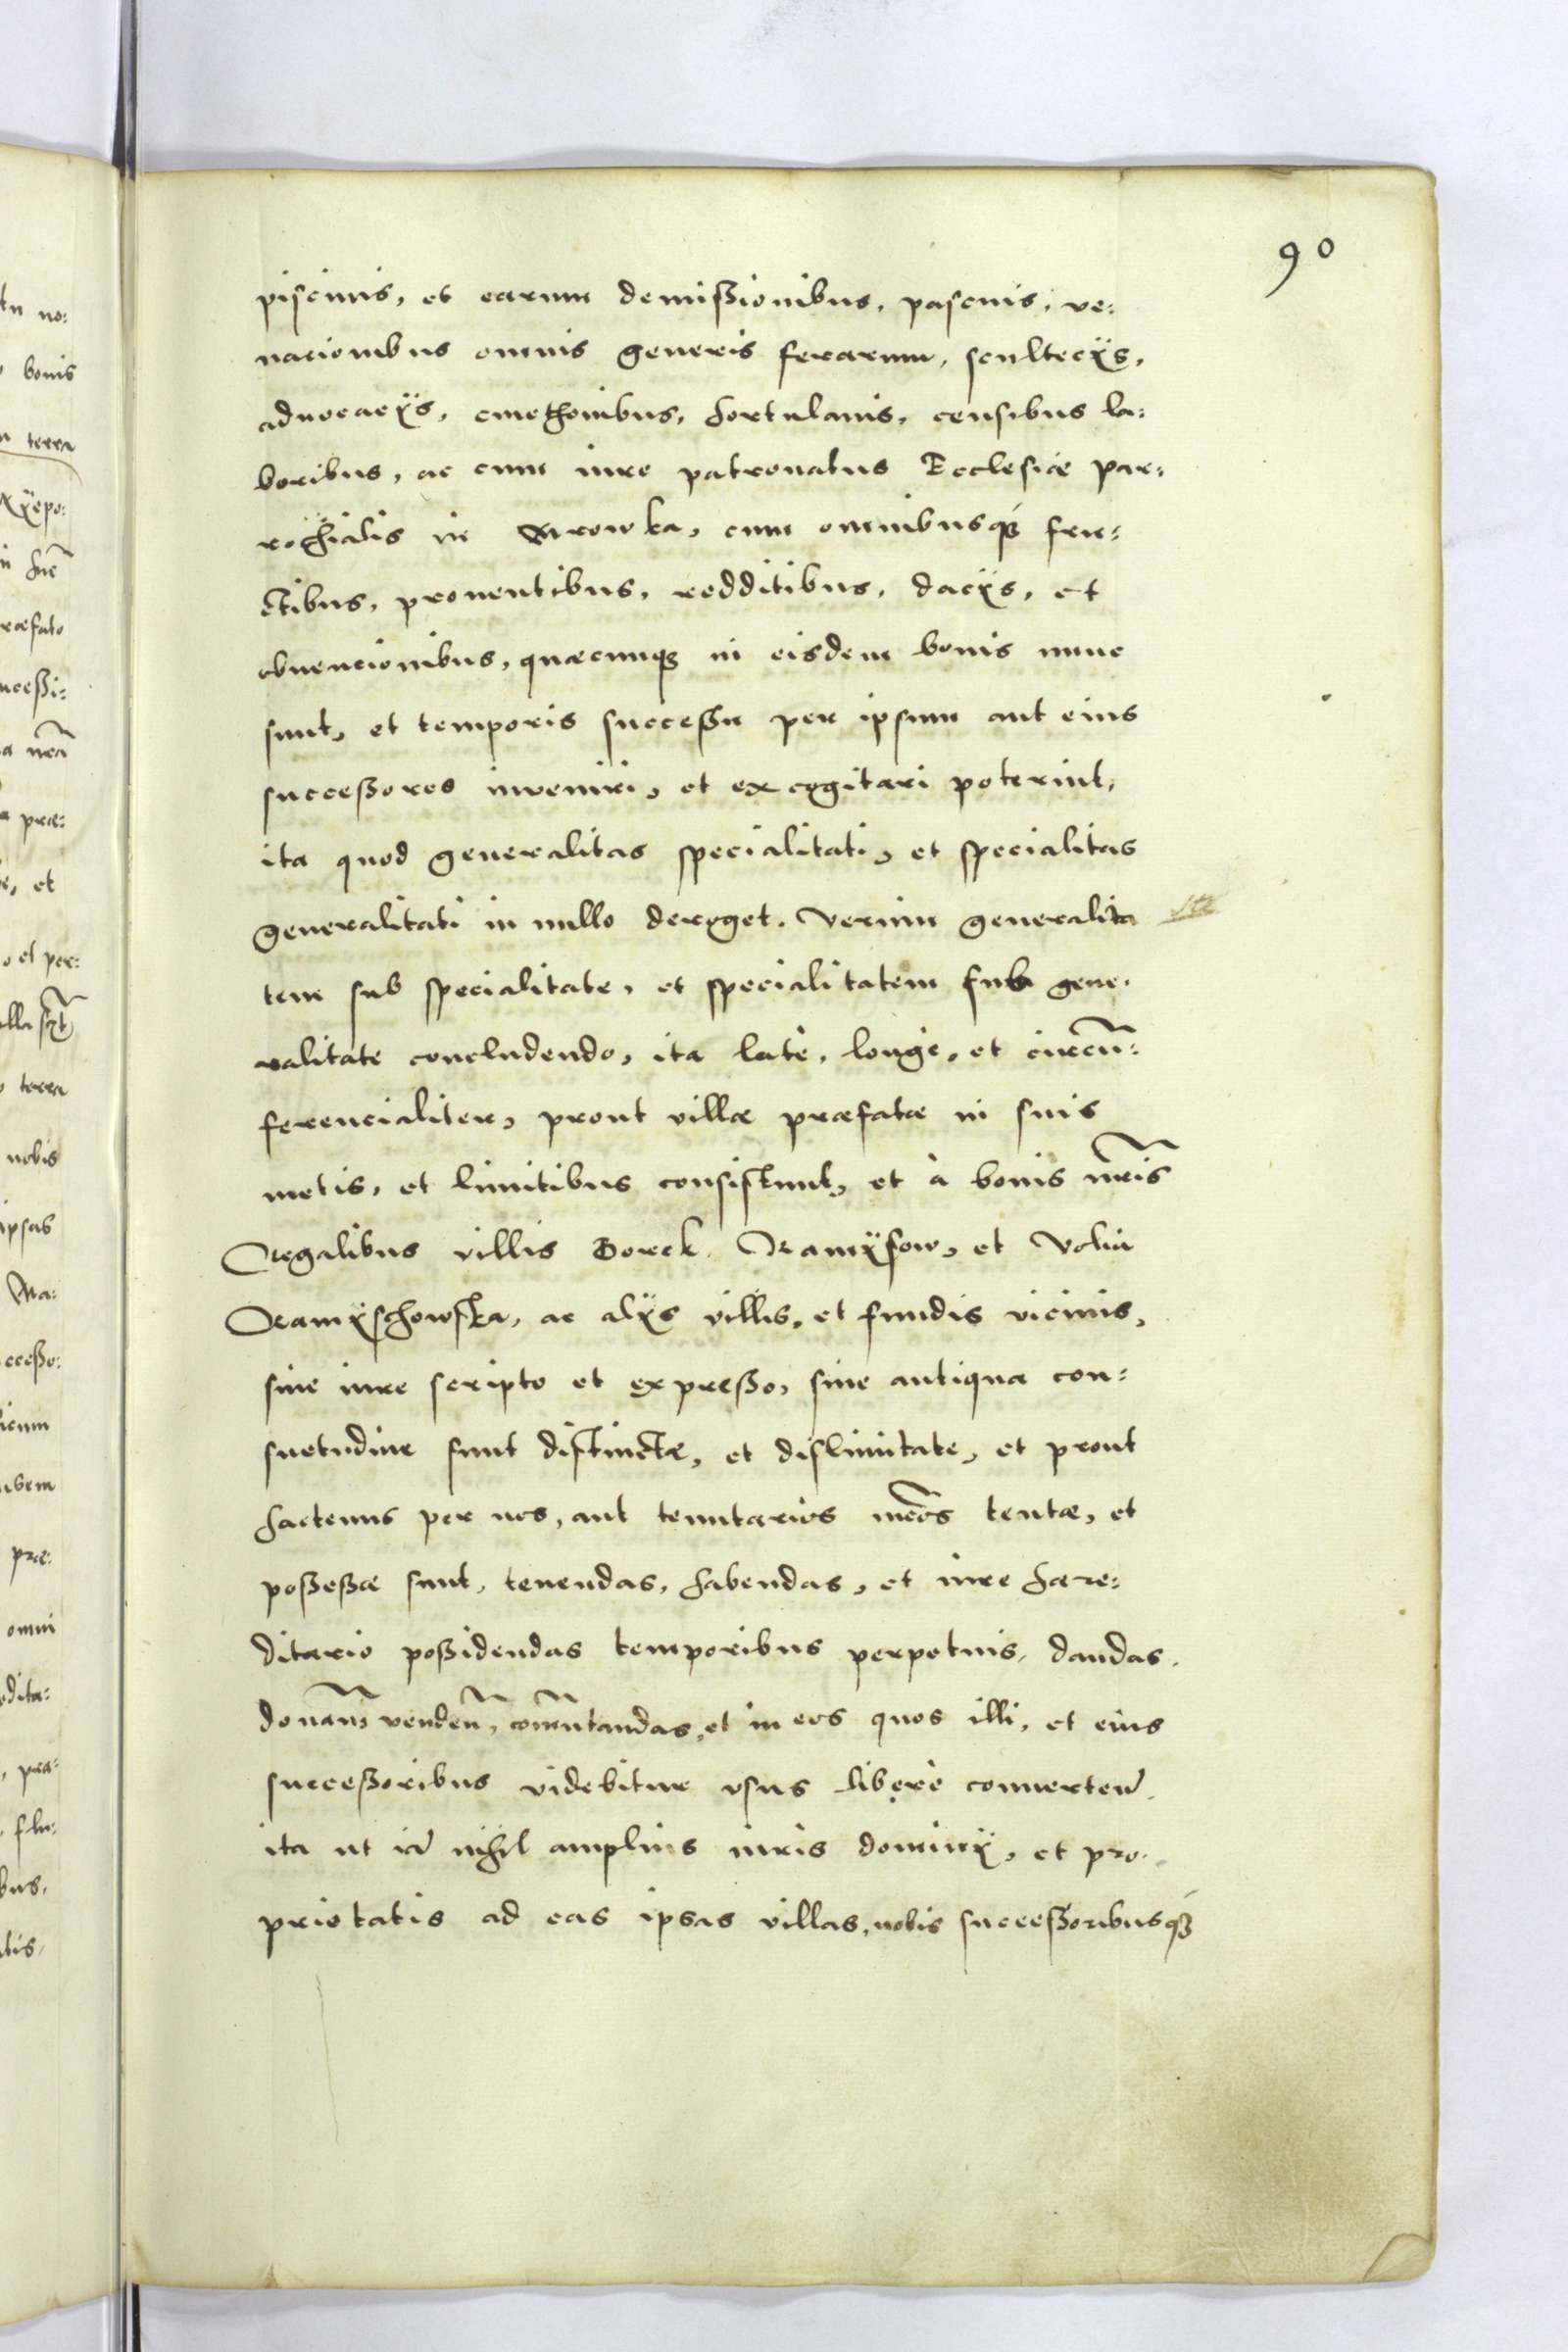 90
piscinis, et earum demißionibus, pascuis, ve:
nacionibus omnis generis ferarum, scultecÿs,
aduocacÿs, cmethonibus, hortulanis, censibus la:
boribus, ac cum iure patronatus Ecclesiæ par:
rochialis in Mrowka, cum omnibusq́ꝫ fru:
ctibus, prouentibus, redditibus, dacÿs, et
obuencionibus, quæcunqꝫ in eisdem bonis nunc
sunt, et temporis succeßu per ipsum aut eius
succeßores inveniri, et excogitari poterint,
ita quod generalitas specialitati, et specialitas
generalitati in nullo deroget. Verum generalita
tem sub specialitate, et specialitatem sub gene.
ralitate concludendo, ita late, longè, et circũ:
ferencialiter, prout villæ præfatæ in suis
metis, et limitibus consistunt, et à bonis nr̃is
Regalibus villis Borek. Ramÿsow, et Volia
Ramÿschowska, ac alÿs villis, et fundis vicinis,
siue iure scripto et expreßo, siue antiqua con:
suetudine sunt distinctæ, et dislimitate, et prout
hactenus per nos, aut tenutarios nr̃os tentæ, et
poßeßæ sunt, tenendas, habendas, et iure hære:
ditario poßidendas temporibus perpetuis, dandas.
donañ venden̄, com̃utandas, et in eos quos illi, et eius
succeßoribus videbitur vsus liberè conuerten̄.
ita ut iã nihil amplius iuris dominÿ, et pro.
prietatis ad eas ipsas villas, nobis succeßoribusq́ꝫ